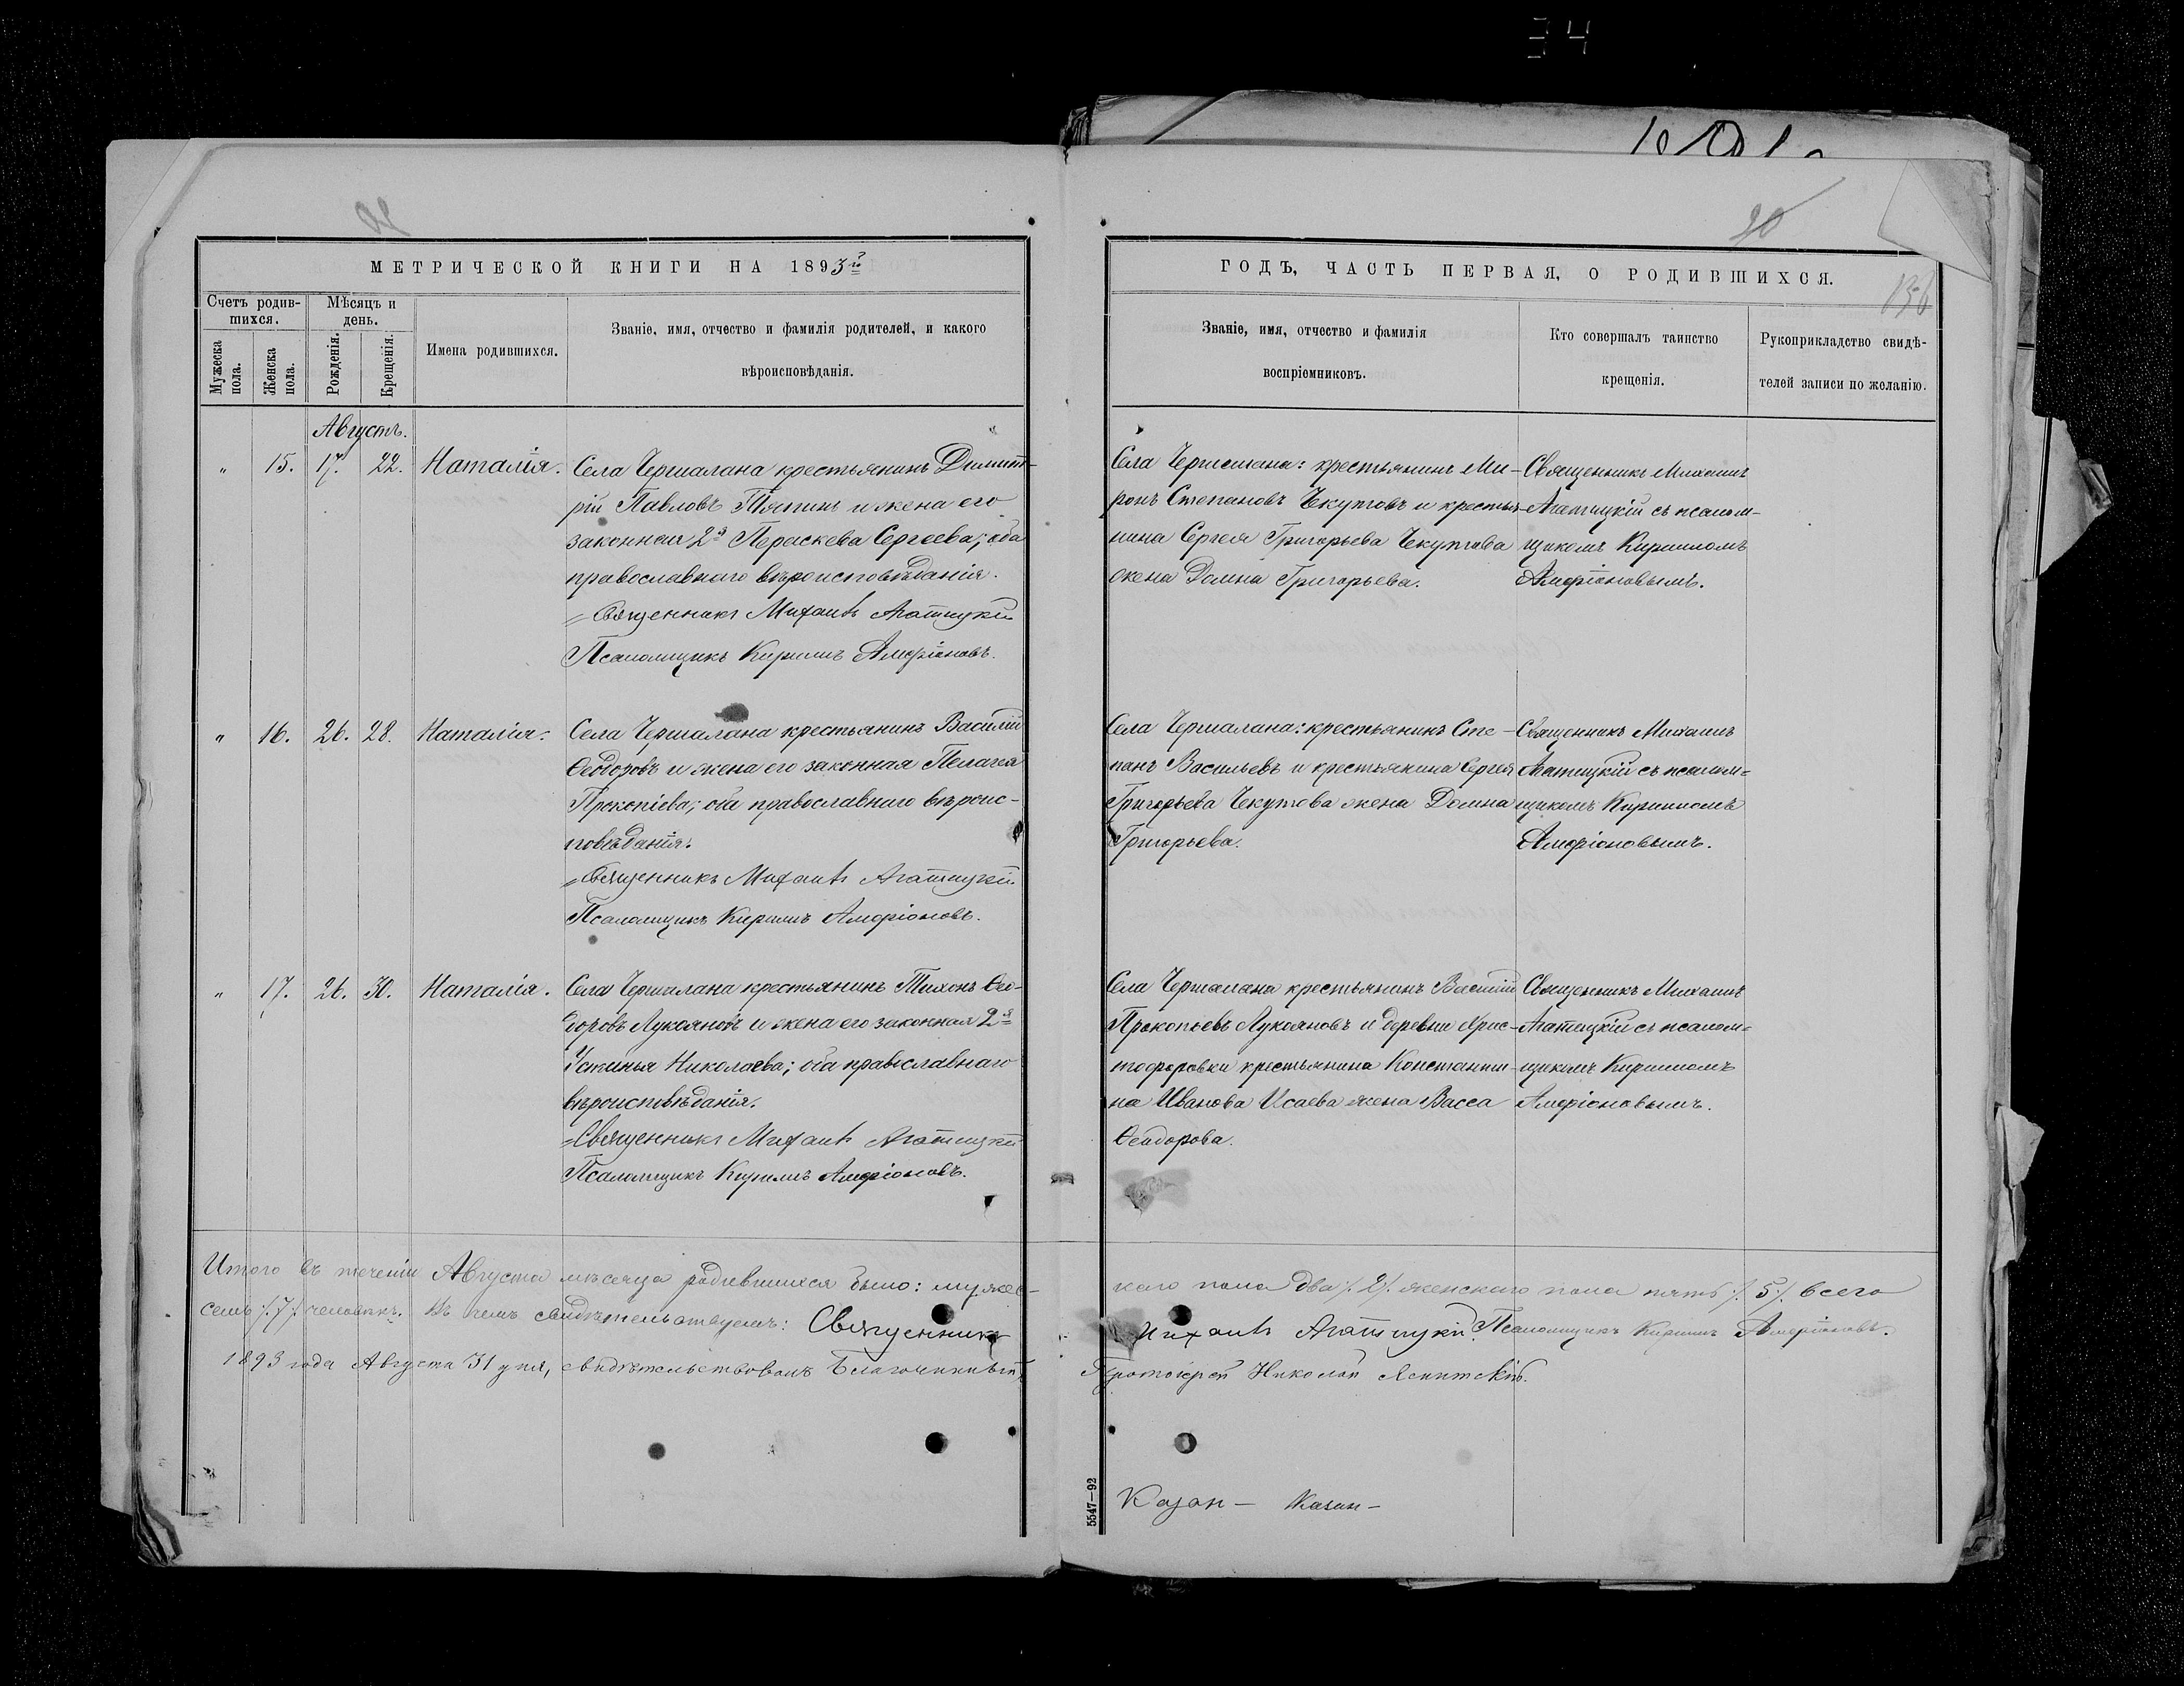 34
90
МЕТРИЧЕСКОЙ КНИГИ НА 1893й
Счетъ родив-
шихся.
Мужеска
пола.
Женска
пола.
Мѣсяцъ и
день.
Рожденія.
Крещенія.
Имена родившихся.
Званіе, имя, отчество и фамилія родителей, и какого
вѣроисповѣданія.
Августъ.
" 15. 17. 22. Наталія.
Села Чершалана крестьянинъ Димит-
рій Павловъ Тяпинъ и жена его
законная 2я Параскева Сергеева; оба
православнаго вѣроисповѣданія.
Священникъ Михаилъ Агатицкій
Псаломщикъ Кириллъ Амфіоновъ.
" 16. 26. 28. Наталія.
Села Чершалана крестьянинъ Василій
Ѳеодоровъ и жена его законная Пелагея
Прокопіева; оба православнаго вѣроис-
повѣданія.
Священникъ Михаилъ Агатицкій
Псаломщикъ Кириллъ Амфіоновъ.
" 17. 26. 30. Наталія.
Села Чершалана крестьянинъ Тихонъ Ѳео-
доровъ Лукояновъ и жена его законная 2я
Устинья Николаева; оба православнаго
вѣроисповѣданія.
Священникъ Михаилъ Агатицкій
Псаломщикъ Кириллъ Амфіоновъ.
Итого въ теченіи Августа мѣсяца родившихся было: мужес-
семь /.7/. человѣкъ. Въ чемъ свидѣтельствуемъ: Священникъ
1893 года Августа 31 дня, свидѣтельствовалъ Благочинный,
90
136
ГОДЪ, ЧАСТЬ ПЕРВАЯ, О РОДИВШИХСЯ.
Званіе, имя, отчество и фамилія
воспріемниковъ.
Кто совершалъ таинство
крещенія.
Рукоприкладство свидѣ-
телей записи по желанію.
Села Чершалана: крестьянинъ Ми-
ронъ Степановъ Чекутовъ и крестья-
нина Сергея Григорьева Чекутова
жена Домна Григорьева.
Священникъ Михаилъ
Агатицкій съ псалом-
щикомъ Кирилломъ
Амфіоновымъ.
Села Чершалана: крестьянинъ Сте-
панъ Васильевъ и крестьянина Сергея
Григорьева Чекутова жена Домна
Григорьева.
Священникъ Михаилъ
Агатицкій съ псалом-
щикомъ Кирилломъ
Амфіоновымъ.
Села Чершалана крестьянинъ Василій
Прокопьевъ Лукояновъ и деревни Хрис-
тофоровки крестьянина Константи-
на Иванова Исаева жена Васса
Ѳеодорова.
Священникъ Михаилъ
Агатицкій съ псалом-
щикомъ Кирилломъ
Амфіоновымъ.
каго пола два /.2/. женскаго пола пять /.5/. всего
Михаилъ Агатицкій. Псаломщикъ Кириллъ Амфіоновъ.
Протоіерей Николай
Казан- Казан-
5547—92